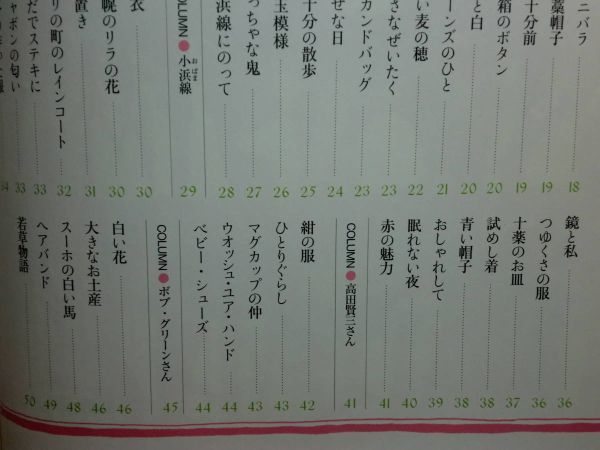 ニバラ 18
藁帽子 19
十分前 19
箱のボタン 20
と白 20
ーンズのひと 21
い麦の穂 22
さなぜいたく 23
カンドバッグ 23
せな日 24
十分の散歩 25
玉模様 26
っちゃな鬼 27
浜線にのって 28
COLUMN ● 小浜線 29
おばま
衣 30
幌のリラの花 30
置き 31
リの町のレインコート 32
だでステキに 33
ャボンの匂い 33
34
鏡と私 36
つゆくさの服 36
十薬のお皿 37
試めし着 38
青い帽子 38
おしゃれして 39
眠れない夜 40
赤の魅力 41
COLUMN ● 高田賢三さん 41
紺の服 42
ひとりぐらし 43
マグカップの仲 43
ウオッシュ・ユア・ハンド 44
ベビー・シューズ 44
COLUMN ● ボブ・グリーンさん 45
白い花 46
大きなお土産 46
スーホの白い馬 48
ヘアバンド 49
若草物語 50